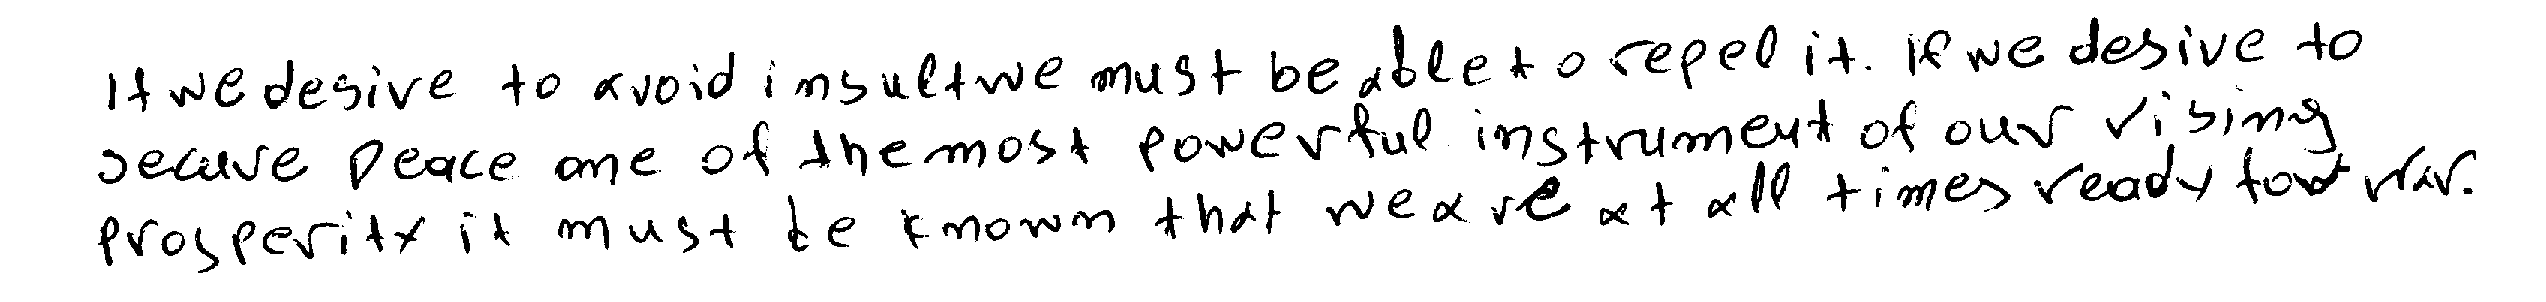 If we desire to avoid insult we must be able to repel it. If we desire to
secure peace one of the most powerful instrument of our rising
prosperity it must be known that we are at all times ready for war.